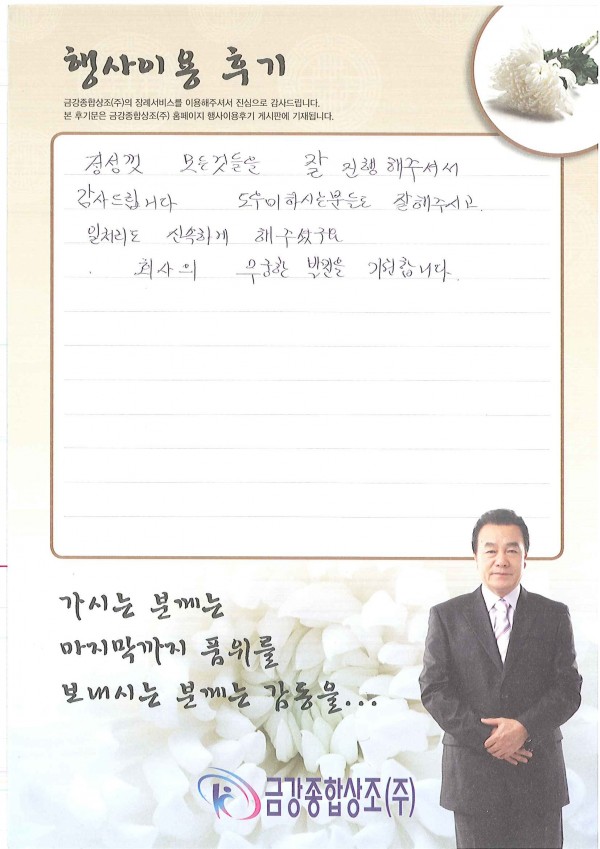 행사이용 후기
금강종합상조(주)의 장례서비스를 이용해주셔서 진심으로 감사드립니다.
본 후기문은 금강종합상조(주) 홈페이지 행사이용후기 게시판에 기재됩니다.
정성껏 모든것들을 잘 진행해주셔서
감사드립니다 도우미하시는분들도 잘해주시고.
일처리도 신속하게 해주셨구요
. 회사의 무궁한 발전을 기원합니다.
가시는 분께는
마지막까지 품위를
보내시는 분께는 감동을...
금강종합상조(주)